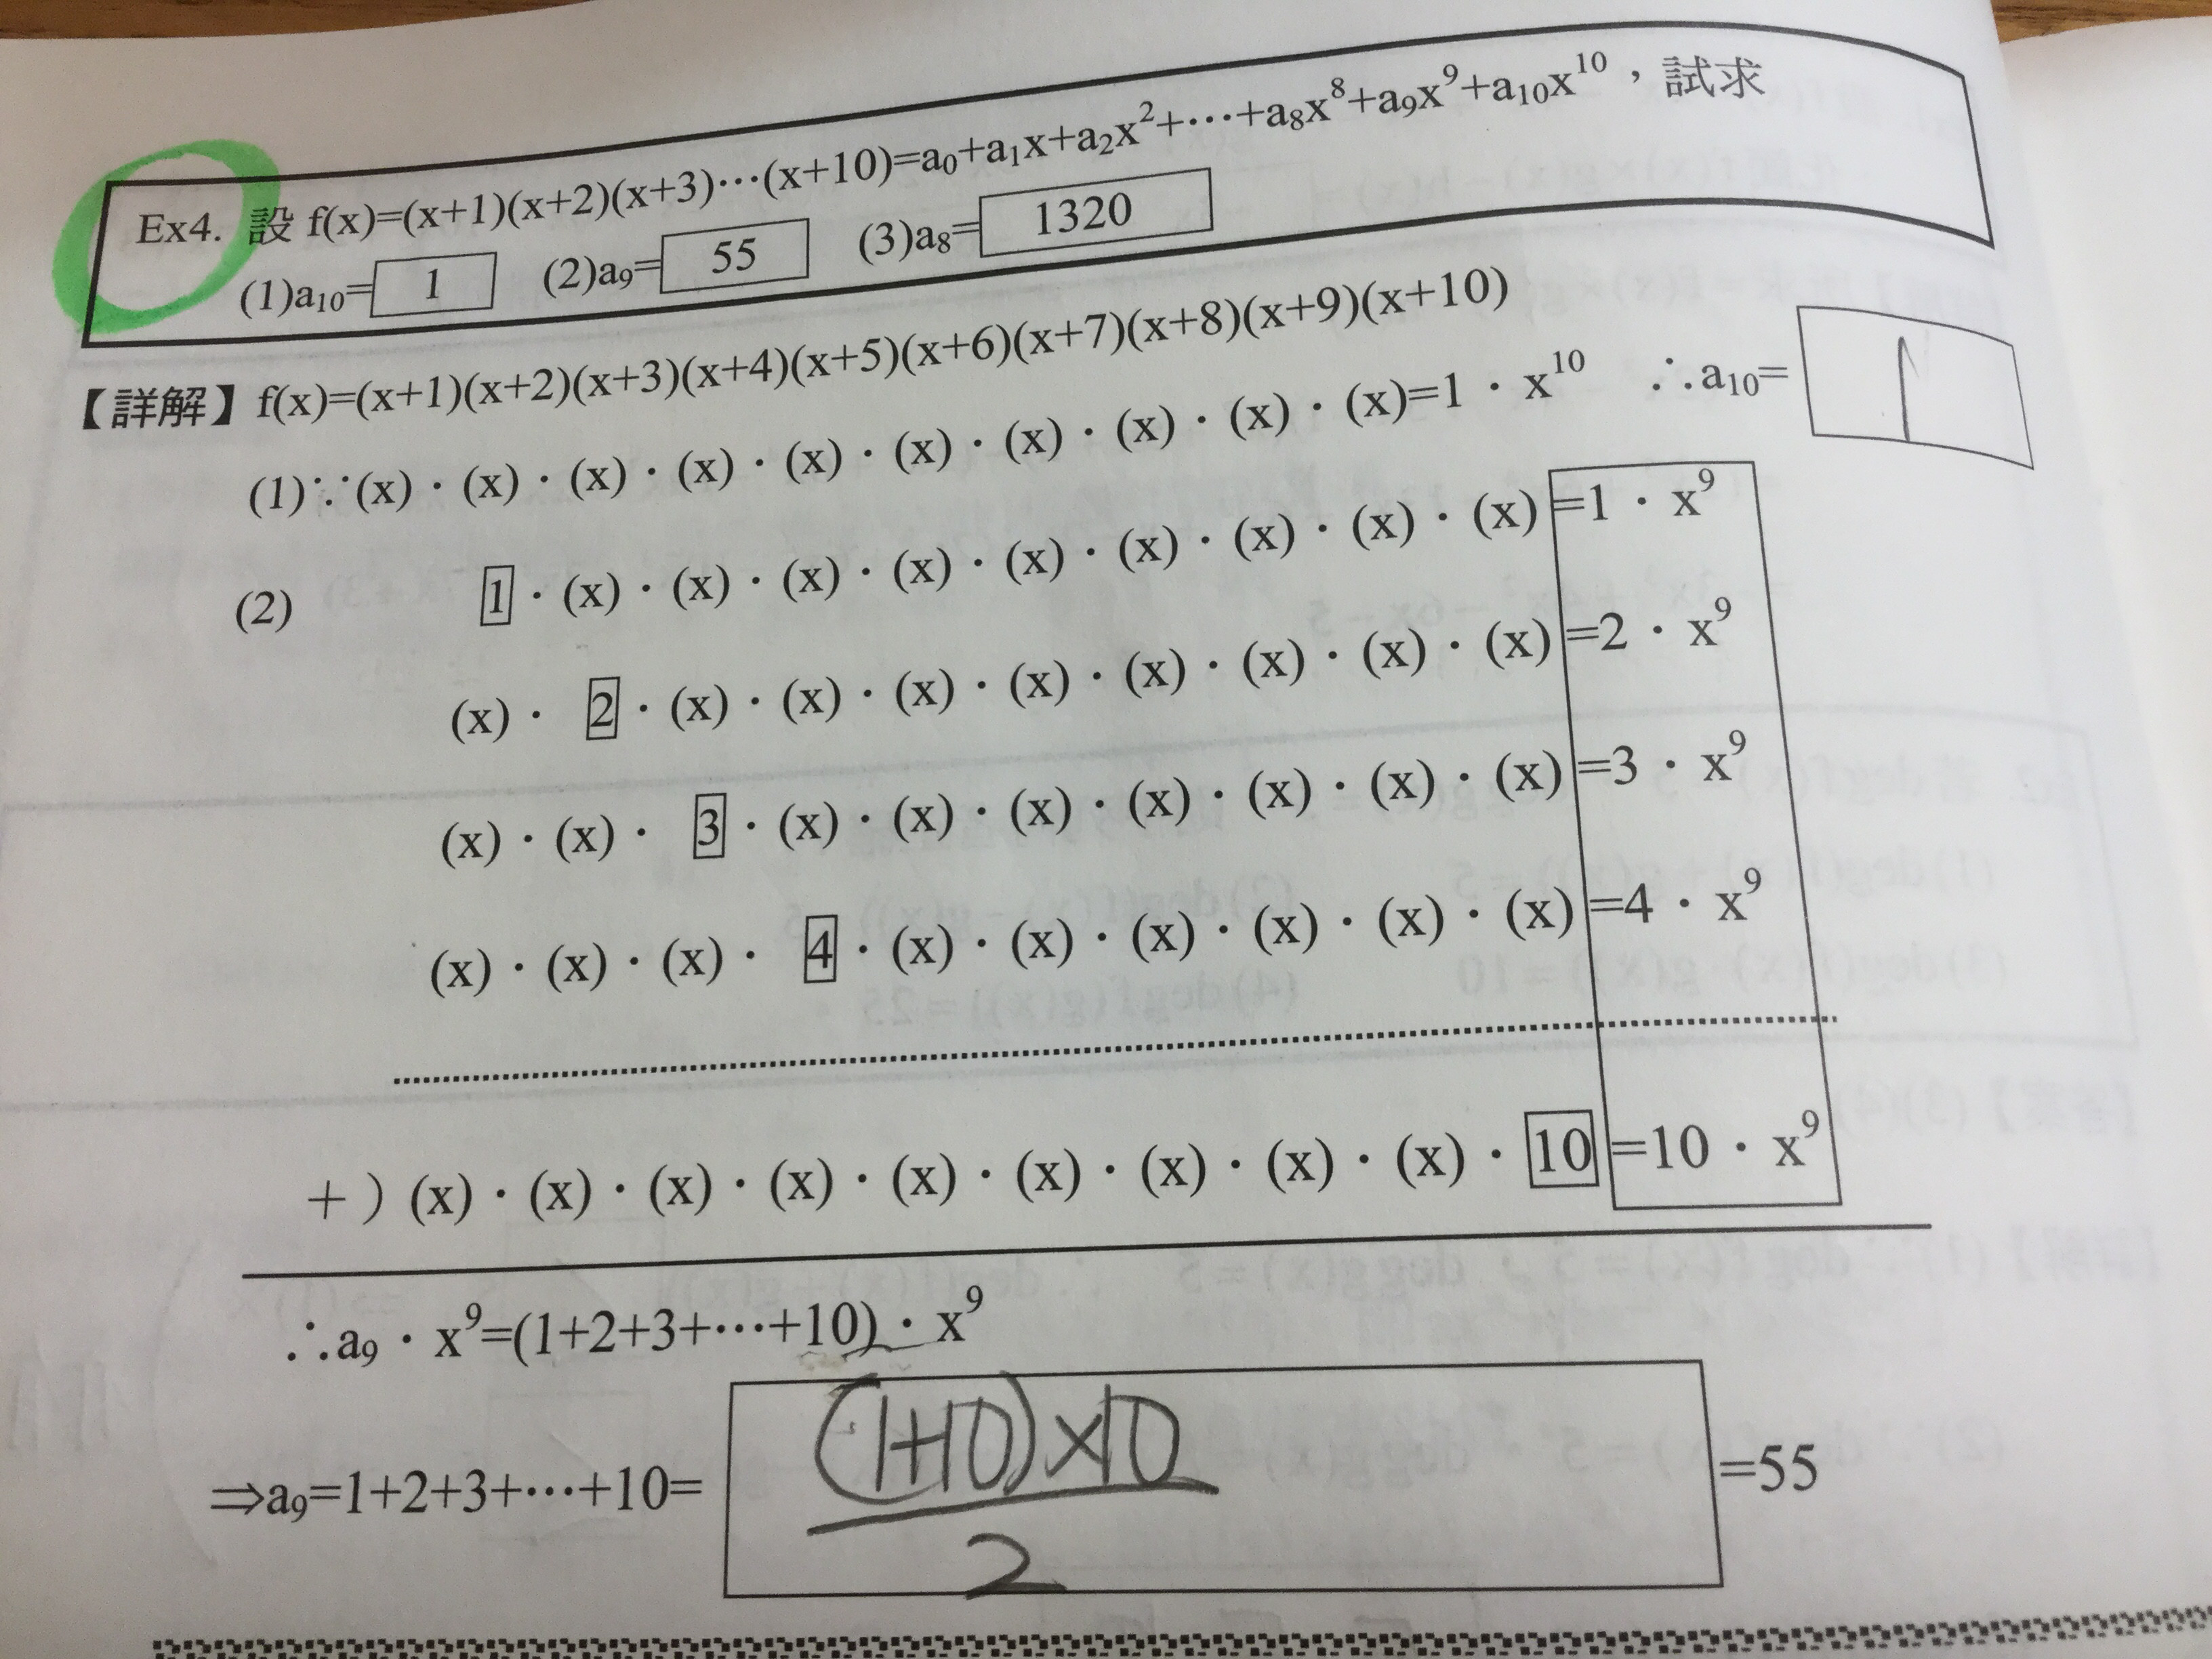 Ex4. 設 f(x)=(x+1)(x+2)(x+3)⋯(x+10)=a₀+a₁x+a₂x²+⋯+a₈x⁸+a₉x⁹+a₁₀x¹⁰,試求
(1)a₁₀= 1 (2)a₉= 55 (3)a₈= 1320
【詳解】f(x)=(x+1)(x+2)(x+3)(x+4)(x+5)(x+6)(x+7)(x+8)(x+9)(x+10)
(1)∵(x)·(x)·(x)·(x)·(x)·(x)·(x)·(x)·(x)·(x)=1·x¹⁰ ∴a₁₀= 1
(2) 1·(x)·(x)·(x)·(x)·(x)·(x)·(x)·(x)·(x)=1·x⁹
(x)·2·(x)·(x)·(x)·(x)·(x)·(x)·(x)·(x)=2·x⁹
(x)·(x)·3·(x)·(x)·(x)·(x)·(x)·(x)·(x)=3·x⁹
(x)·(x)·(x)·4·(x)·(x)·(x)·(x)·(x)·(x)=4·x⁹
+)(x)·(x)·(x)·(x)·(x)·(x)·(x)·(x)·(x)·10=10·x⁹
∴a₉·x⁹=(1+2+3+⋯+10)·x⁹
⇒a₉=1+2+3+⋯+10= (1+10)×10/2 =55